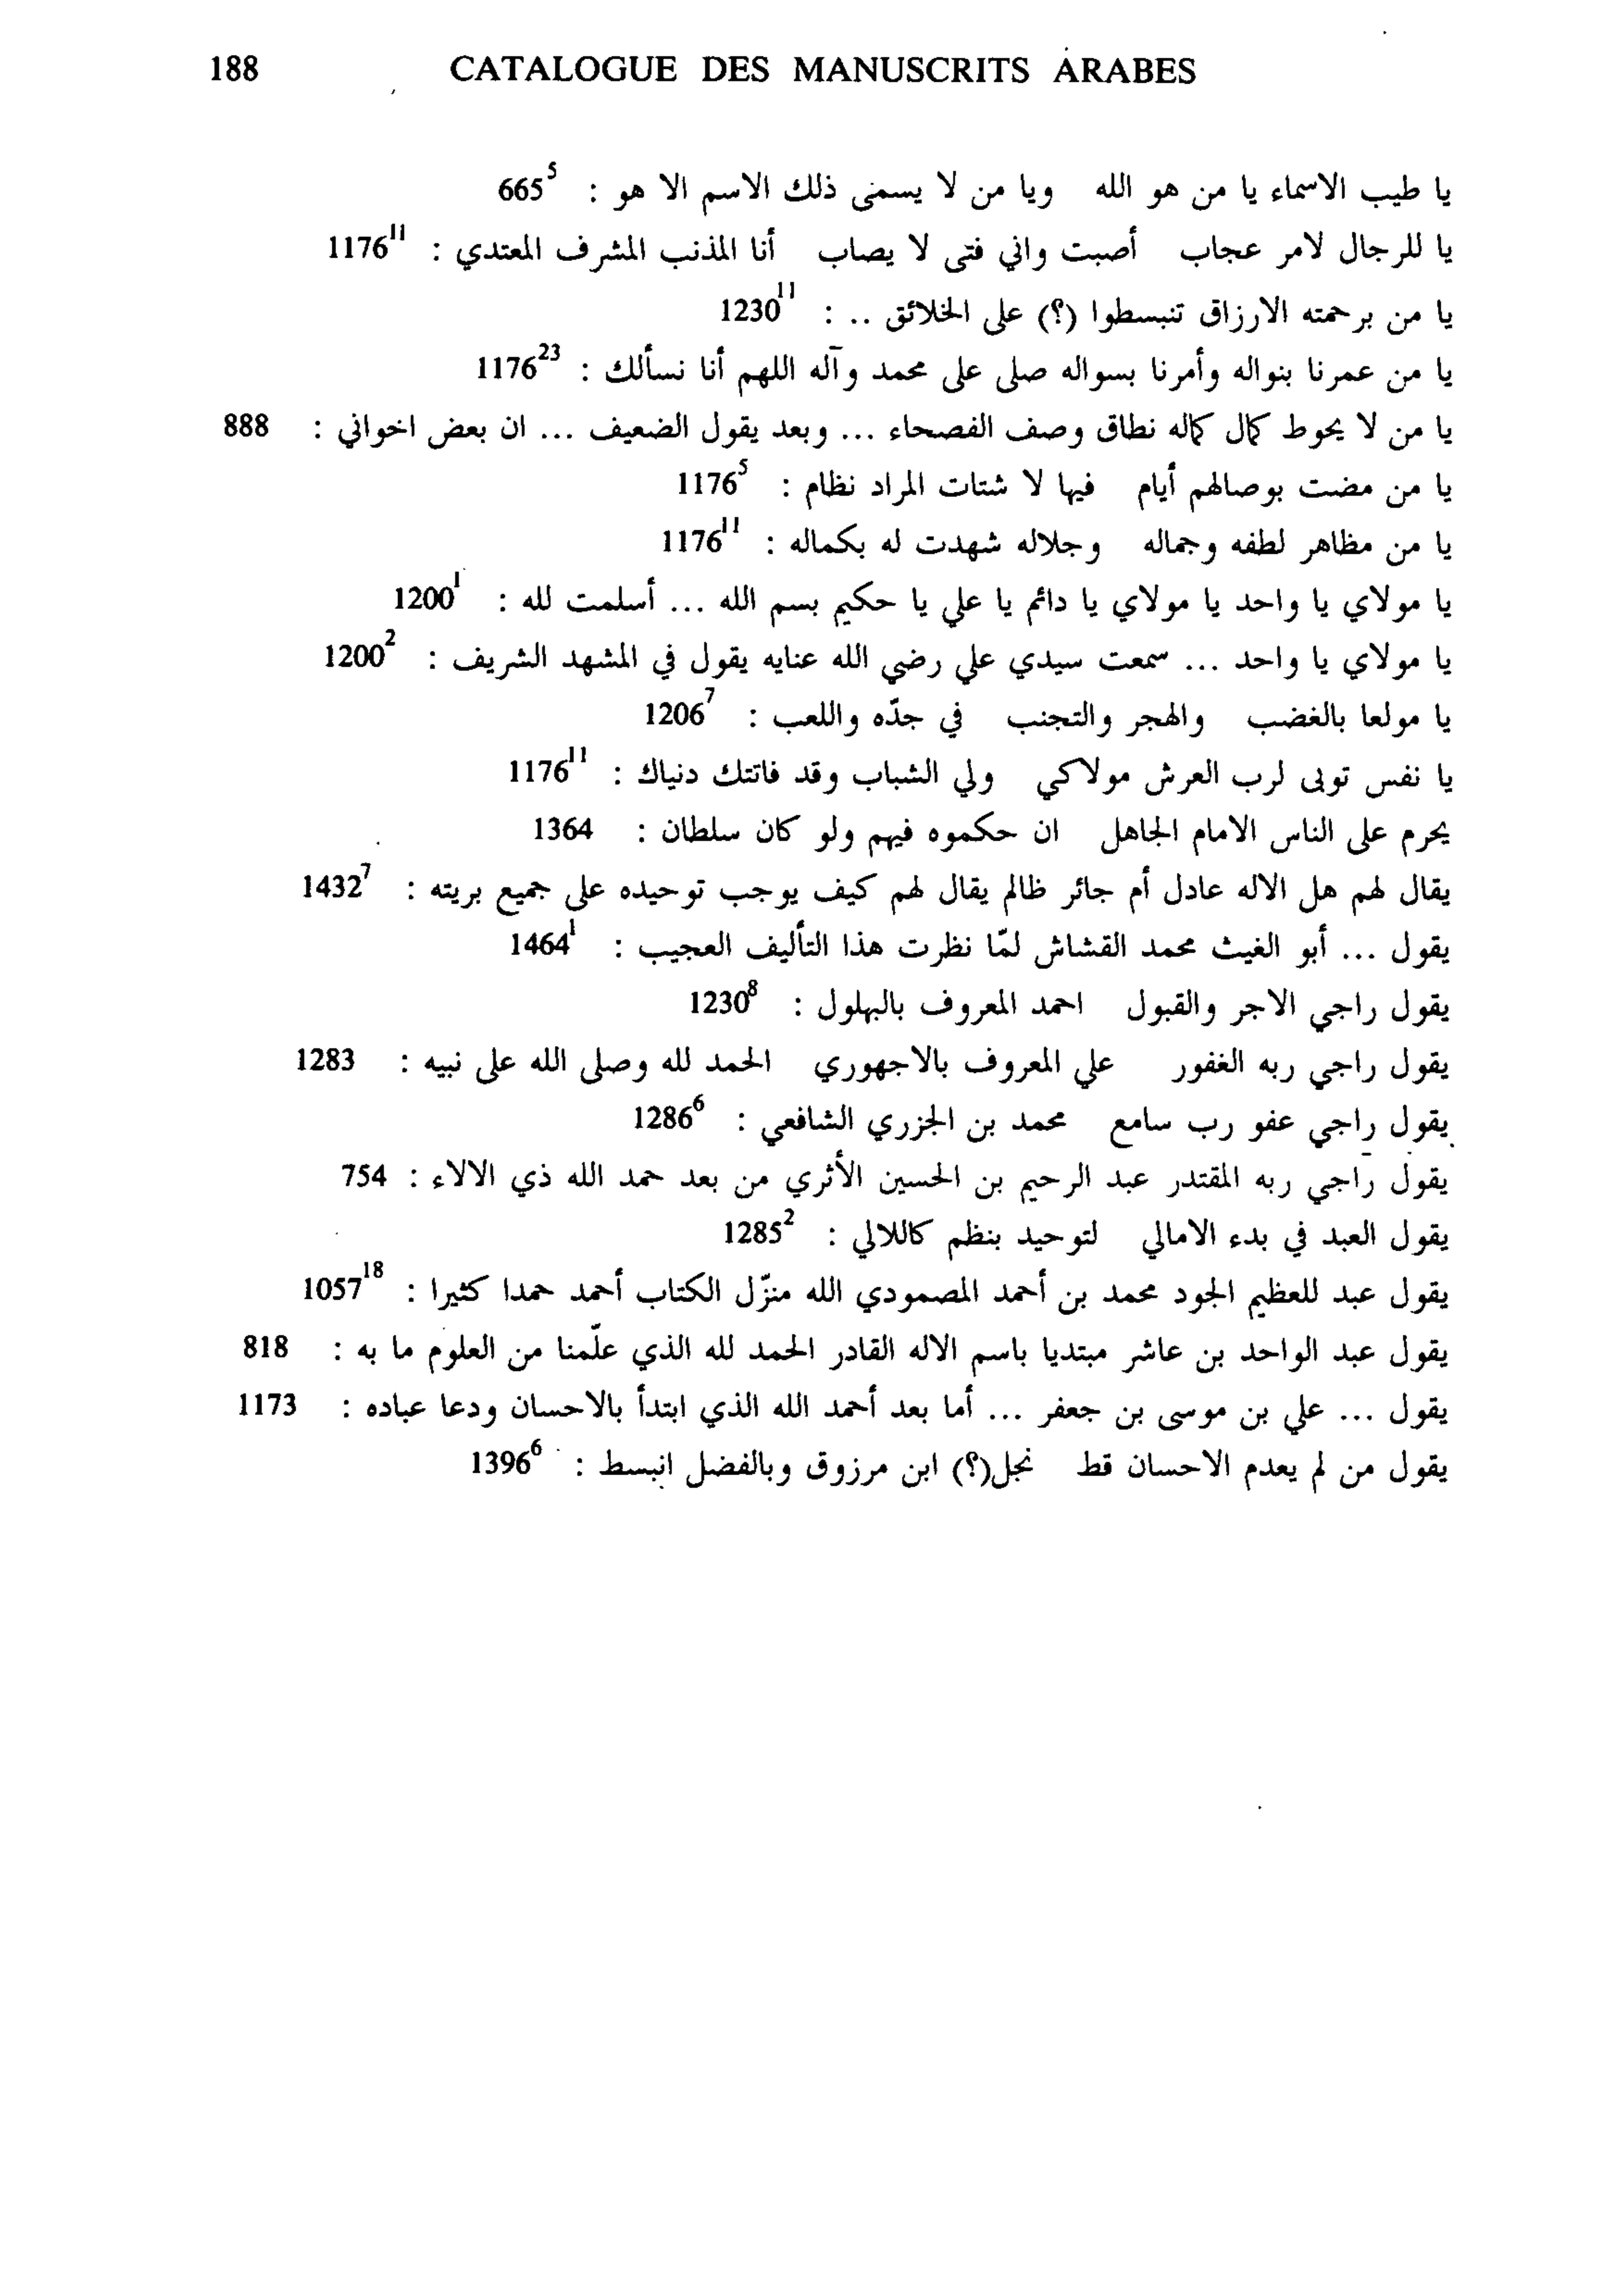 188 CATALOGUE DES MANUSCRITS ARABES
يا طيب الاسماء يا من هو الله ويا من لا يسمى ذلك الاسم الا هو : 665⁵
يا للرجال لامر عجاب أصبت واني فتى لا يصاب أنا المذنب المشرف المعتدي : 1176¹¹
يا من برحمته الارزاق تنبسطوا (؟) على الخلائق .. : 1230¹¹
يا من عمرنا بنواله وأمرنا بسواله صلى على محمد وآله اللهم أنا نسألك : 1176²³
يا من لا يحوط كمال كماله نطاق وصف الفصحاء ... وبعد يقول الضعيف ... ان بعض اخواني : 888
يا من مضت بوصالهم أيام فيها لا شتات المراد نظام : 1176⁵
يا من مظاهر لطفه وجماله وجلاله شهدت له بكماله : 1176¹¹
يا مولاي يا واحد يا مولاي يا دائم يا علي يا حكيم بسم الله ... أسلمت لله : 1200¹
يا مولاي يا واحد ... سمعت سيدي علي رضي الله عنايه يقول في المشهد الشريف : 1200²
يا مولعا بالغضب والهجر والتجنب في جدّه واللعب : 1206⁷
يا نفس توبى لرب العرش مولاكي ولي الشباب وقد فاتتك دنياك : 1176¹¹
يحرم على الناس الامام الجاهل ان حكموه فيهم ولو كان سلطان : 1364
يقال لهم هل الاله عادل أم جائر ظالم يقال لهم كيف يوجب توحيده على جميع بريته : 1432⁷
يقول ... أبو الغيث محمد القشاش لمّا نظرت هذا التأليف العجيب : 1464¹
يقول راجي الاجر والقبول احمد المعروف بالبهلول : 1230⁸
يقول راجي ربه الغفور علي المعروف بالاجهوري الحمد لله وصلى الله على نبيه : 1283
يقول راجي عفو رب سامع محمد بن الجزري الشافعي : 1286⁶
يقول راجي ربه المقتدر عبد الرحيم بن الحسين الأثري من بعد حمد الله ذي الالاء : 754
يقول العبد في بدء الامالي لتوحيد بنظم كاللالي : 1285²
يقول عبد للعظيم الجود محمد بن أحمد المصمودي الله منزّل الكتاب أحمد حمدا كثيرا : 1057¹⁸
يقول عبد الواحد بن عاشر مبتديا باسم الاله القادر الحمد لله الذي علّمنا من العلوم ما به : 818
يقول ... علي بن موسى بن جعفر ... أما بعد أحمد الله الذي ابتدأ بالاحسان ودعا عباده : 1173
يقول من لم يعدم الاحسان قط نجل(؟) ابن مرزوق وبالفضل انبسط : 1396⁶